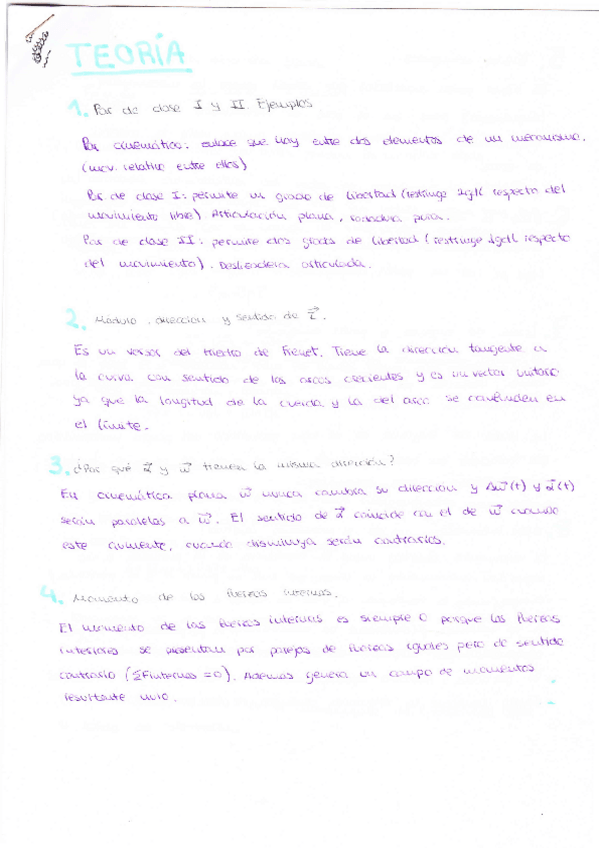 TEORÍA
1. Par de clase I y II. Ejemplos
Par cinemático: enlace que hay entre dos elementos de un mecanismo.
(mov. relativo entre ellos)
Par de clase I: permite un grado de libertad (restringe 2gdl respecto del
movimiento libre) Articulación plana, rodadura pura.
Par de clase II: permite dos grados de libertad (restringe 1gdl respecto
del movimiento). Deslizadera articulada.
2. Módulo, dirección y sentido de
Es un versor del triedro de Frenet. Tiene la dirección tangente a
la curva con sentido de los arcos crecientes y es un vector unitario
ya que la longitud de la cuerda y la del arco se confunden en
el límite.
3. ¿Por qué α⃗ y ω⃗ tienen la misma dirección?
En cinemática plana ω⃗ nunca cambia su dirección y Δω⃗(t) y α⃗(t)
serán paralelas a ω⃗. El sentido de α⃗ coincide con el de ω⃗ cuando
este aumente, cuando disminuya serán contrarios.
4. Momento de las fuerzas internas.
El momento de las fuerzas internas es siempre 0 porque las fuerzas
interiores se presentan por parejas de fuerzas iguales pero de sentido
contrario (ΣFinternas = 0). Además genera un campo de momentos
resultante nulo.